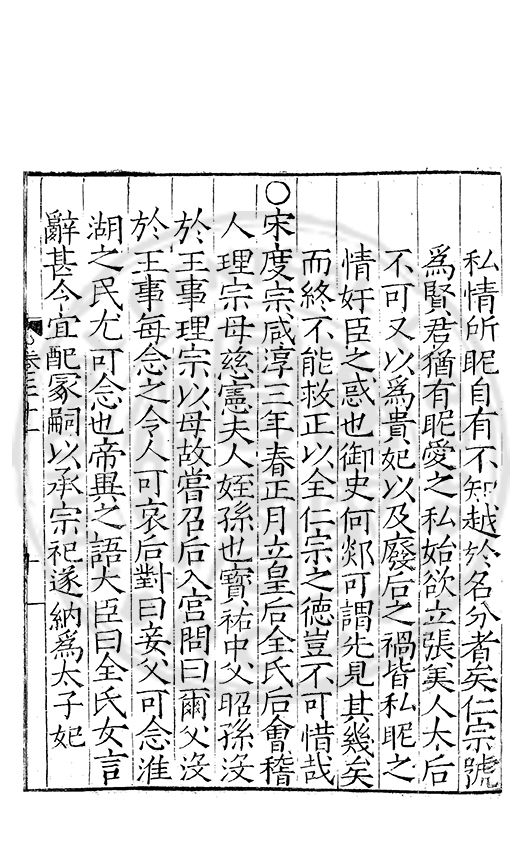 私情所昵自有不知越於名分者矣仁宗號
爲賢君猶有昵愛之私始欲立張美人太后
不可又以爲貴妃以及廢后之禍皆私昵之
情奸臣之惑也御史何郯可謂先見其幾矣
而終不能救正以全仁宗之德豈不可惜哉
○宋度宗咸淳三年春正月立皇后全氏后會稽
人理宗母慈憲夫人姪孫也寶祐中父昭孫沒
於王事理宗以母故嘗召后入宮問曰爾父沒
於王事每念之令人可哀后對曰妾父可念淮
湖之民尤可念也帝異之語大臣曰全氏女言
辭甚令宜配冡嗣以承宗祀遂納爲太子妃